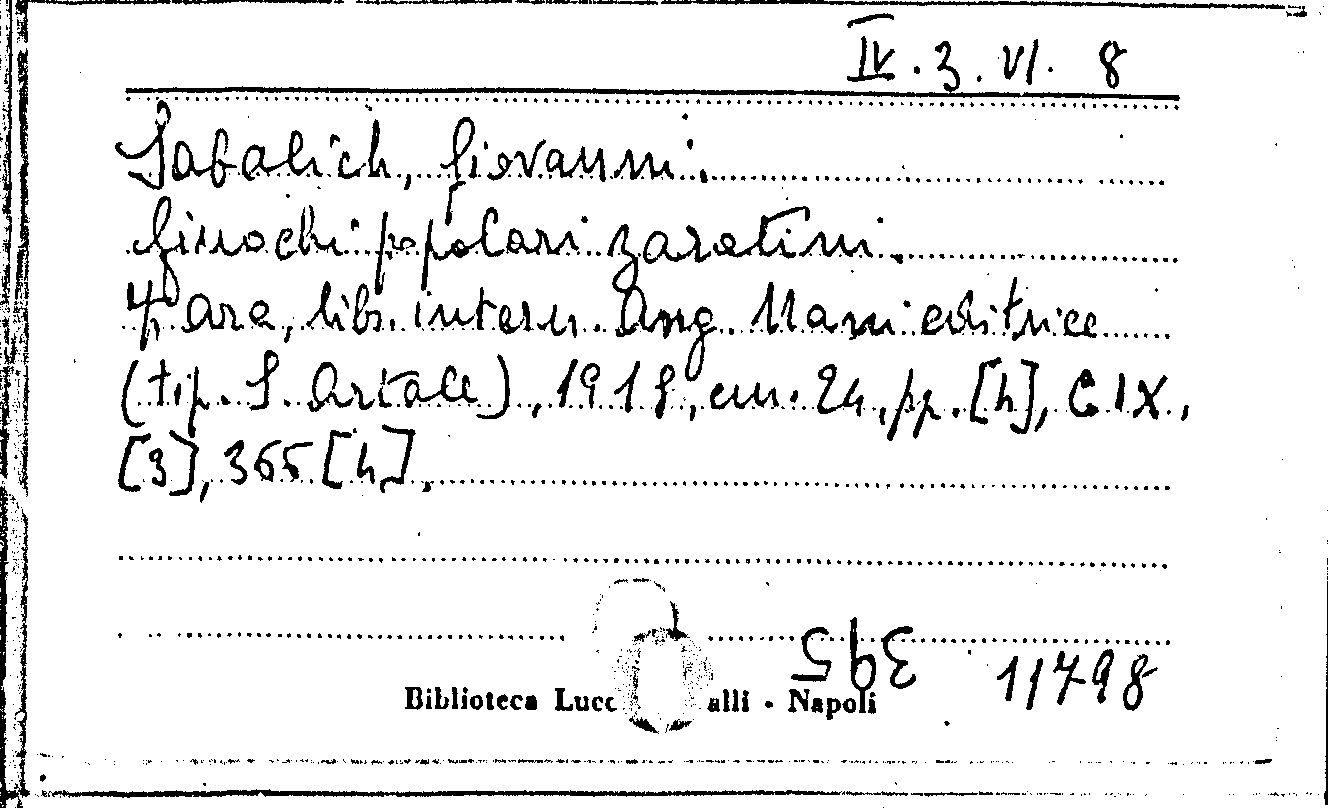 IV. 3. VI. 8
Sabalich, Giovanni.
Giuochi popolari zaratini.
Zara, lib. intern. Ang. Nani editrice
(tip. S. Artale), 1918, cm. 24, pp. [4], CIX,
[3], 365 [4].
395
11798
Biblioteca Lucc alli - Napoli